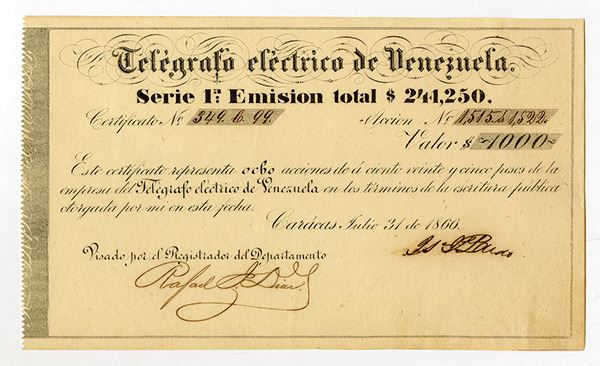 Telégrafo eléctrico de Venezuela.
Serie 1ª Emision total $ 241,250.
Certificato Nº 349. C. 99. Accion Nº 1,515. á 1,522.
Valor $ ~1000~
Este certificato representa ocho acciones de á ciento veinte y cinco pesos de la
empresa del Telégrafo eléctrico de Venezuela en los términos de la escritura pública
otorgada por mi en esta fecha.
Carácas Julio 31 de 1866.
Visado por el Registrador del Departamento
Rafael